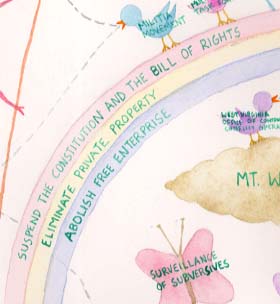 MILITIA
MOVEMENT
SUSPEND THE CONSTITUTION AND THE BILL OF RIGHTS
ELIMINATE PRIVATE PROPERTY
ABOLISH FREE ENTERPRISE
WEST VIRGINIA
OFFICE OF
MT. W
SURVEILLANCE
OF SUBVERSIVES